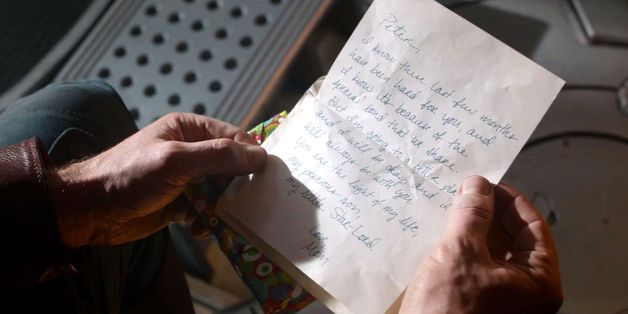 Peter,
I know these last few months
have been hard for you, and
I know it's because of the
special bond that we share.
But I'm going to a better
and I will be okay. And I
will always be with you.
You are the light of my life,
my precious son,
my little Star-Lord.
Love,
Mom